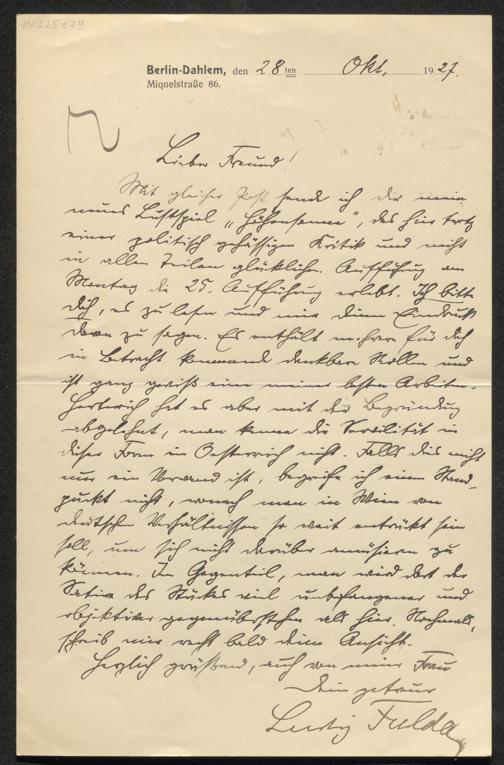 IN 225179
Berlin-Dahlem, den 28ten Okt. 1927.
Miquelstraße 86.
Lieber Freund!
Mit gleicher Post sende ich dir mein
neues Lustspiel „Höhensonne", das hier trotz
einer politisch gehässigen Kritik und nicht
in allen Teilen glücklichen Aufführung am
Montag die 25. Aufführung erlebt. Ich bitte
dich, es zu lesen und mir deinen Eindruck
davon zu sagen. Es enthält mehrere für dich
in Betracht kommende dankbare Rollen und
ist ganz gewiß eine meiner besten Arbeiten.
Herterich hat es aber mit der Begründung
abgelehnt, man kenne die Servilität in
dieser Form in Oesterreich nicht. Falls dies nicht
nur ein Vorwand ist, begreife ich einen Stand-
punkt nicht, wonach man in Wien von
deutschen Verhältnissen so weit entrückt sein
soll, um sich nicht darüber amüsieren zu
können. Im Gegenteil, man wird dort der
Satire des Stückes viel unbefangener und
objektiver gegenüberstehen als hier. Nochmals,
schreib mir recht bald deine Ansicht.
Herzlich grüßend, auch von meiner Frau
Dein getreuer
Ludwig Fulda